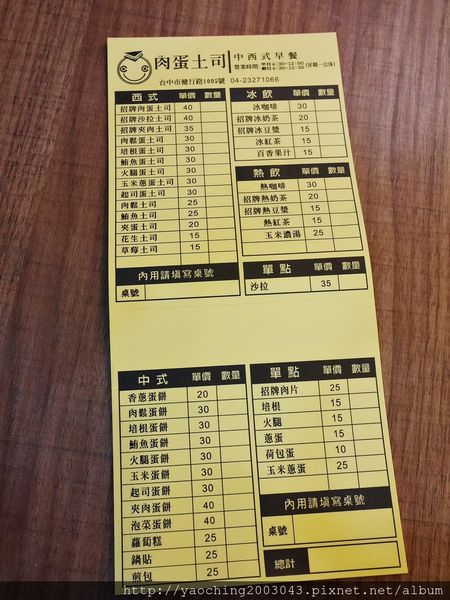 肉蛋土司 中西式早餐
營業時間 平日4:30-12:00
假日4:30-12:30 (星期一公休)
台中市健行路1005號 04-23271066
西式 單價 數量
招牌肉蛋土司 40
招牌沙拉土司 40
招牌夾肉土司 35
肉鬆蛋土司 30
培根蛋土司 30
鮪魚蛋土司 30
火腿蛋土司 30
玉米蔥蛋土司 30
起司蛋土司 30
肉鬆土司 25
鮪魚土司 25
夾蛋土司 20
花生土司 15
草莓土司 15
內用請填寫桌號
桌號
冰飲 單價 數量
冰咖啡 30
招牌冰奶茶 20
招牌冰豆漿 15
冰紅茶 15
百香果汁 15
熱飲 單價 數量
熱咖啡 30
招牌熱奶茶 20
招牌熱豆漿 15
熱紅茶 15
玉米濃湯 25
單點 單價 數量
沙拉 35
中式 單價 數量
香蔥蛋餅 20
肉鬆蛋餅 30
培根蛋餅 30
鮪魚蛋餅 30
火腿蛋餅 30
玉米蛋餅 30
起司蛋餅 30
夾肉蛋餅 40
泡菜蛋餅 40
蘿蔔糕 25
鍋貼 25
煎包 25
單點 單價 數量
招牌肉片 25
培根 15
火腿 15
蔥蛋 15
荷包蛋 10
玉米蔥蛋 25
內用請填寫桌號
桌號
總計
http://yaoching2003043.pixnet.net/album